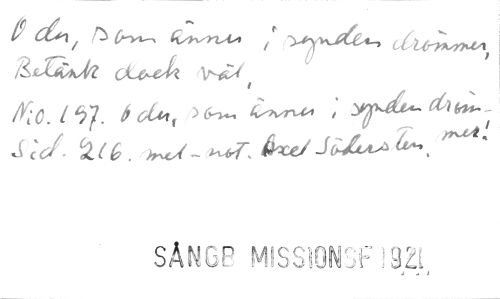 O du, som ännu i synden drömmer,
Betänk dock väl,
No. 197. O du, som ännu i synden dröm-
mer!
Sid. 216. mel-not. Axel Södersten.
SÅNGB MISSIONSF 1921